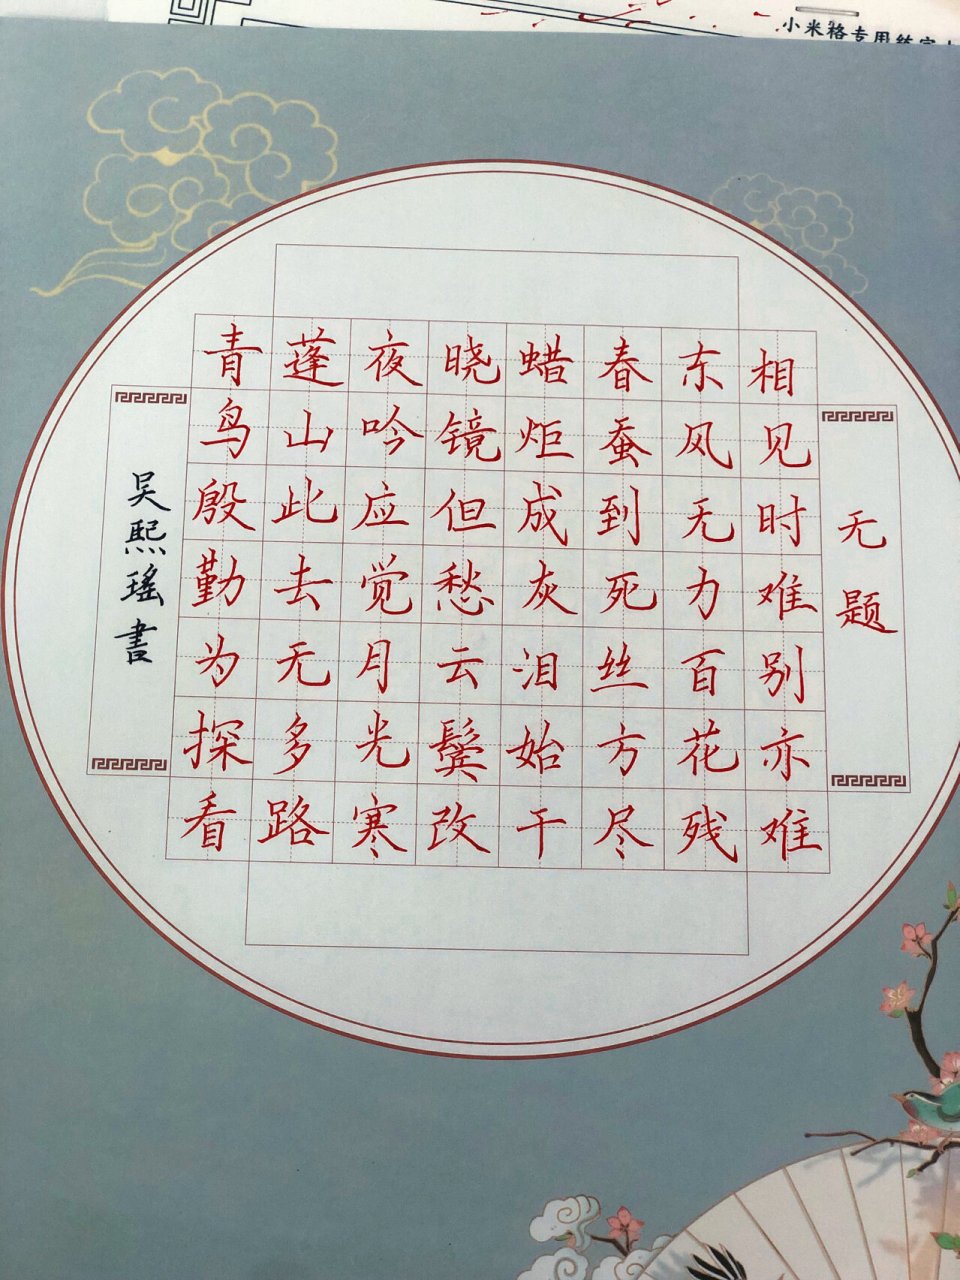 小米格专用练字
无题
相见时难别亦难
东风无力百花残
春蚕到死丝方尽
蜡炬成灰泪始干
晓镜但愁云鬓改
夜吟应觉月光寒
蓬山此去无多路
青鸟殷勤为探看
吴熙瑶書